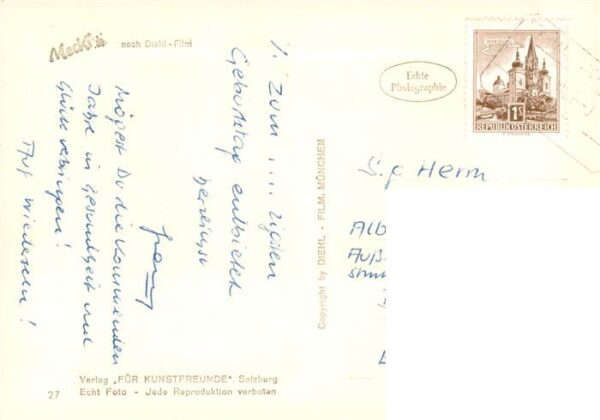 Mecki
nach Diehl-Film
Echte
Photographie
1 S
REPUBLIK ÖSTERREICH
1. Zum .... zigsten
Geburtstag entbietet
herzlichst
Mögest Du die kommenden
Jahre in Gesundheit und
Glück verbringen!
Auf Wiedersehn!
Copyright by DIEHL-FILM, MÜNCHEN
S. g. Herrn
Verlag „FÜR KUNSTFREUNDE“, Salzburg
27 Echt Foto - Jede Reproduktion verboten